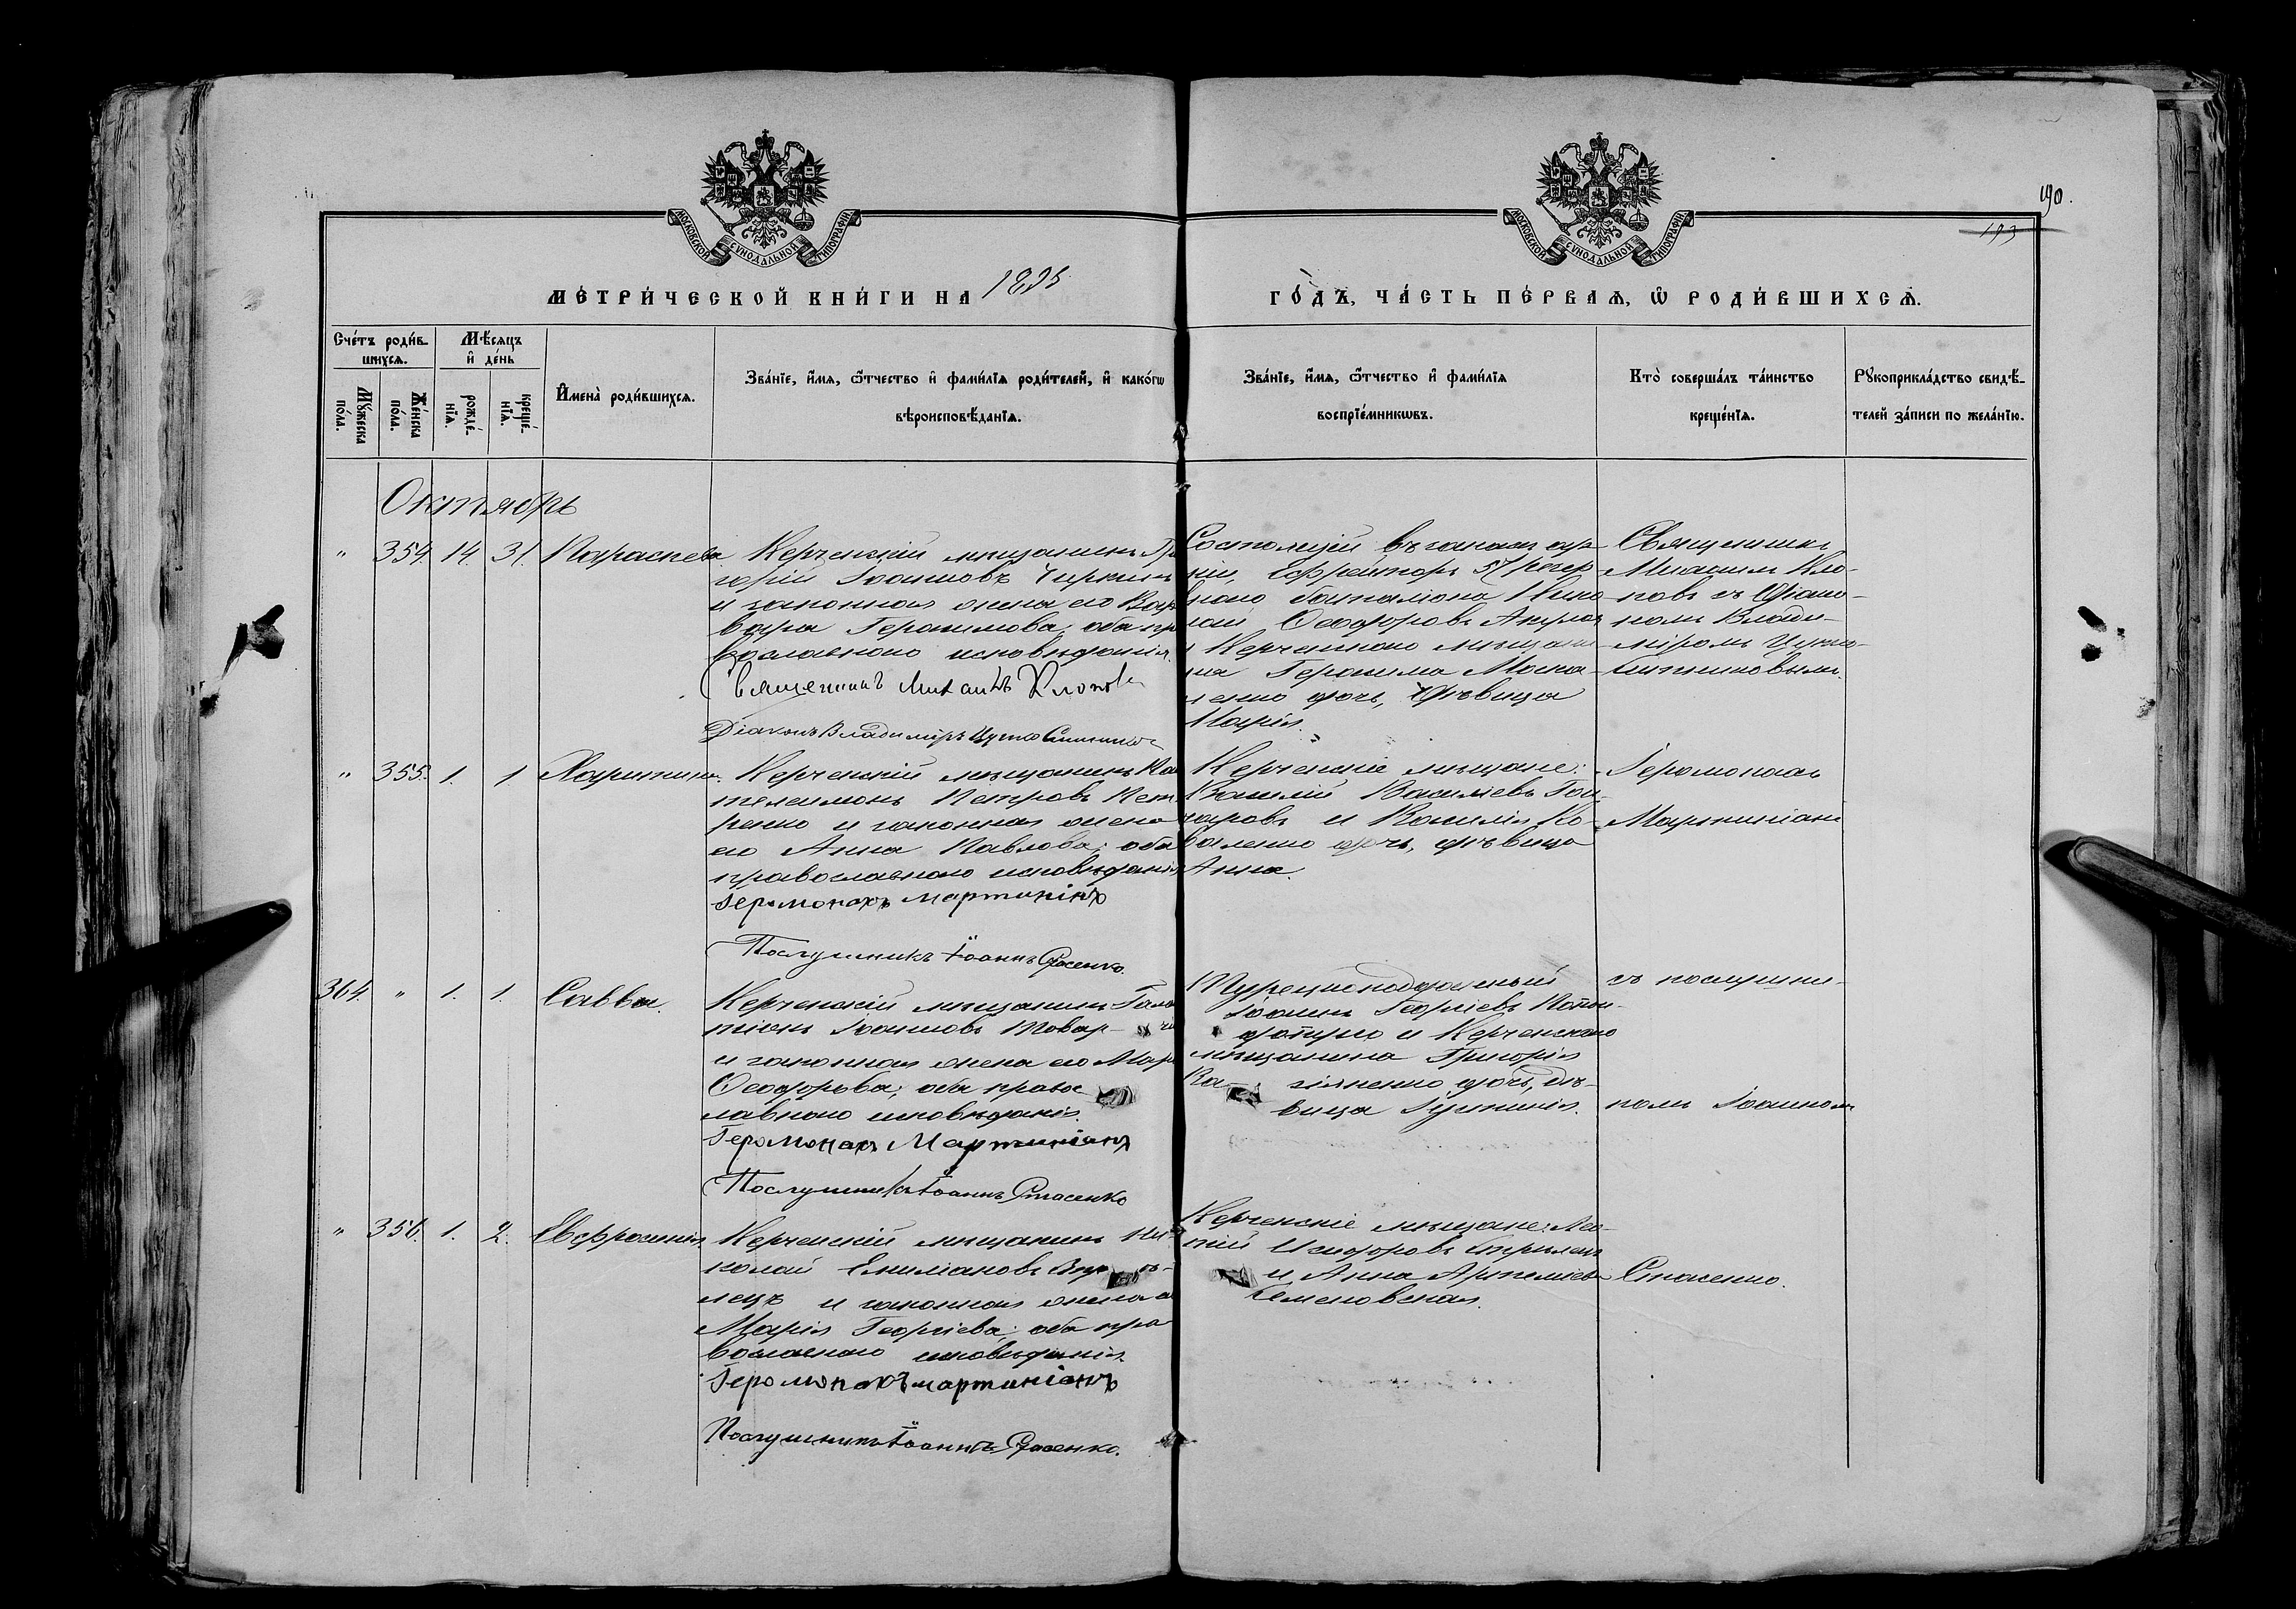 190.
193
МОСКОВСКОЙ СУНОДАЛЬНОЙ ТИПОГРАФІИ
МОСКОВСКОЙ СУНОДАЛЬНОЙ ТИПОГРАФІИ
МЕ́ТРИ́ЧЕСКОЙ КНИ́ГИ НА 1895
ГО́ДЪ, ЧА́СТЬ ПЕ́РВАѦ, Ѡ РОДИ́ВШИХСѦ.
Сче́тъ роди́в-
шихсѧ.
Мѣ́сѧцъ
и де́нь
Мꙋ́жеска по́ла.
Же́нска по́ла.
рожде́-
нїѧ.
креще́-
нїѧ.
И҆мена̀ роди́вшихсѧ.
Зва́нїе, и҆́мѧ, ѻ҆́тчество и҆ фами́лїѧ роди́телей, и҆ како́гѡ
вѣроисповѣ́данїѧ.
Зва́нїе, и҆́мѧ, ѻ҆́тчество и҆ фами́лїѧ
воспрїе́мникѡвъ.
Кто̀ соверша́лъ та́инство
креще́нїѧ.
Рꙋкоприкла́дство свидѣ́-
телей за́писи по жела́нїю.
Октябрь
" 354. 14. 31. Параскева.
Керченскій мѣщанинъ Гри
горій Іоанновъ Чиркинъ
и законная жена его Вар
вара Герасимова, оба пра
вославного исповѣданія.
Священникъ Михаилъ Клопов
Діаконъ Владиміръ
Состоящій въ запасѣ ар-
міи, Ефрейторъ 57 резер
вного баталіона Нико
лай Ѳеодоровъ
и Керченского мѣщани
на Герасима Моска-
ленко дочь, дѣвица
Марія.
Священникъ
Михаилъ Кло-
повъ съ діако-
номъ Влади-
міромъ
" 355. 1. 1. Харитина.
Керченскій мѣщанинъ Пан
телеимонъ Петровъ Пет
ренко и законная жена
его Анна Павлова; оба
православного исповѣданія
Іеромонахъ Мартиніанъ
Послушникъ Іоаннъ Стасенко.
Керченскіе мѣщане:
Василій Василіевъ Гон-
чаровъ и Василія Ко-
валенко дочь, дѣвица
Анна.
Іеромонахъ
Мартиніанъ
364. " 1. 1. Савва.
Керченскій мѣщанинъ
Іоанновъ
и законная жена его Марія
Ѳеодорова; оба правос
лавного исповѣданія.
Іеромонахъ Мартиніанъ
Послушникъ Іоаннъ Стасенко
Іоаннъ Георгіевъ
и Керченского
мѣщанина Григорія
дочь, дѣ-
вица Іустинія.
съ послушни-
комъ Іоанномъ
" 356. 1. 2. Евфросинія
Керченскій мѣщанинъ Ни-
колай Емиліановъ
лецъ и законная жена его
Марія Георгіева; оба пра
вославного исповѣданія.
Іеромонахъ Мартиніанъ
Послушникъ Іоаннъ Стасенко.
Керченскіе мѣщане:
Исидоровъ
и Анна Артеміева
Семеновская.
Стасенко.